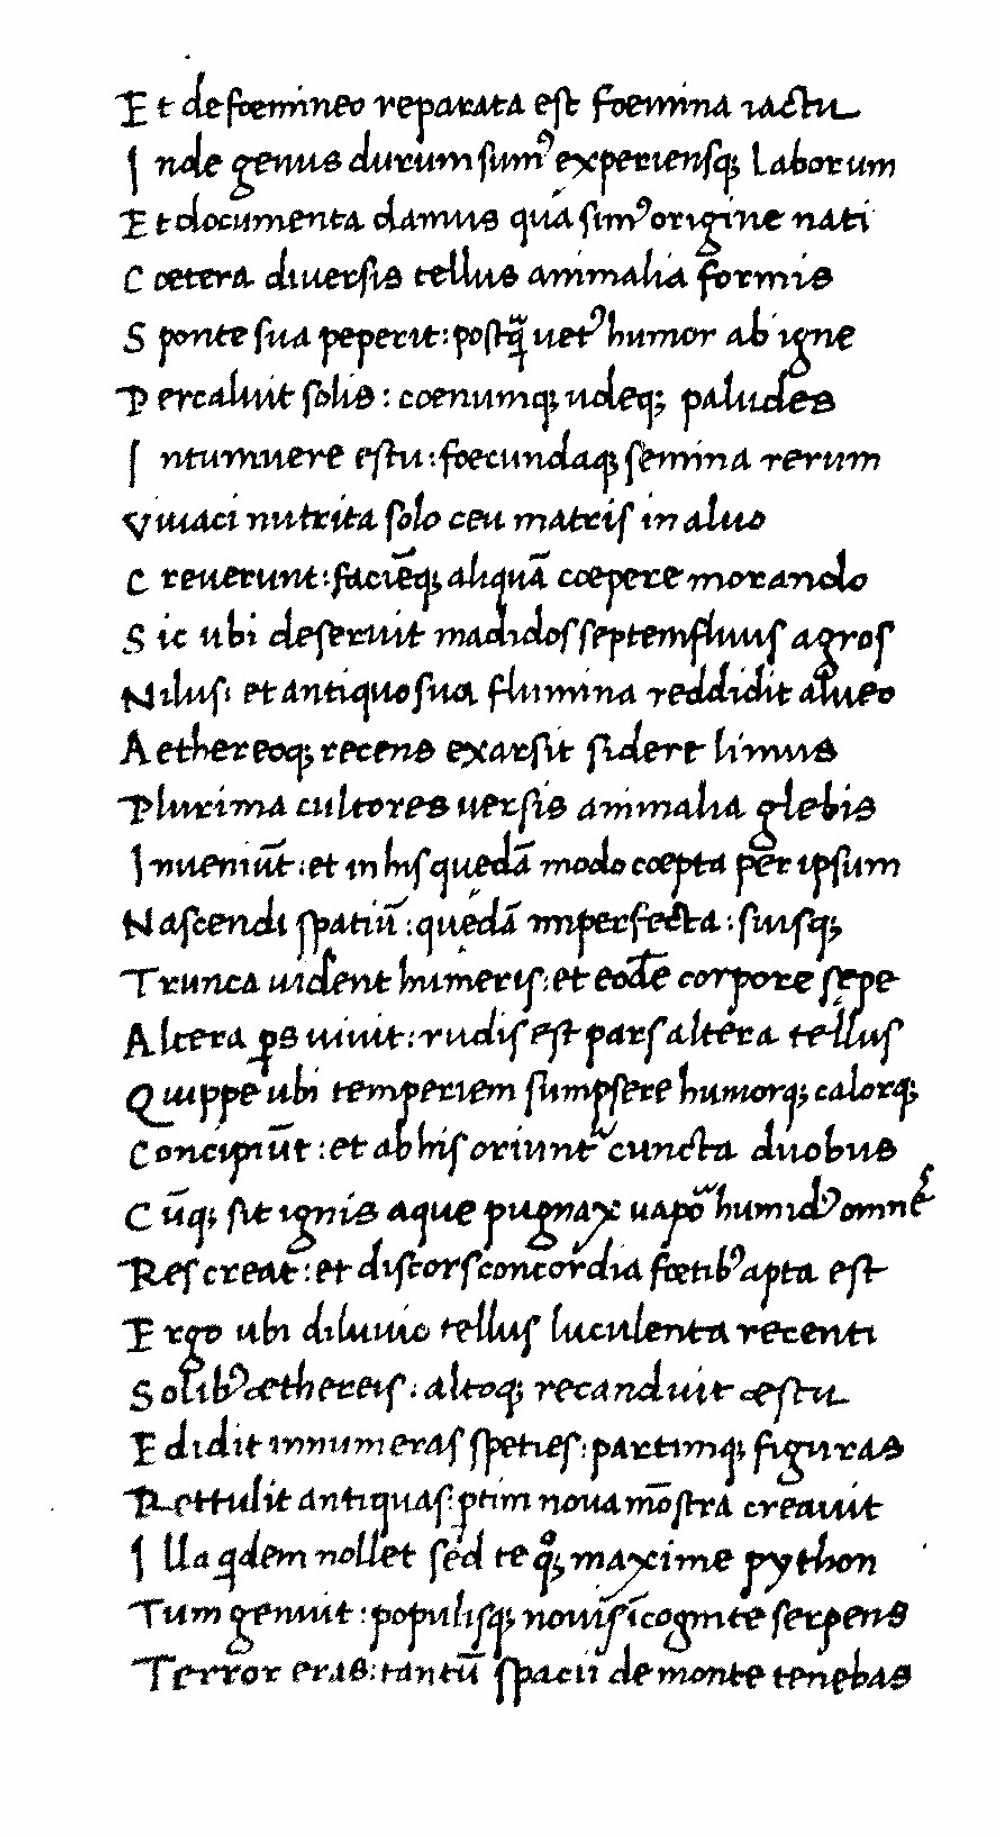 Et de foemineo reparata est foemina iactu
Inde genus durum sumꝰ experiensqꝫ laborum
Et documenta damus qua simꝰ origine nati
Coetera diuersis tellus animalia formis
Sponte sua peperit: postq̃ uetꝰ humor ab igne
Percaluit solis: coenumqꝫ udeqꝫ paludes
Intumuere estu: foecundaqꝫ semina rerum
Viuaci nutrita solo ceu matris in aluo
Creuerunt: faciēqꝫ aliquā coepere morando
Sic ubi deseruit madidos septemfluus agros
Nilus: et antiquo sua flumina reddidit alueo
Aethereoqꝫ recens exarsit sidere limus
Plurima cultores uersis animalia glebis
Inueniūt: et in his quedā modo coepta per ipsum
Nascendi spatiū: quedā imperfecta: suisqꝫ
Trunca uident humeris: et eodē corpore sepe
Altera ꝑs uiuit: rudis est pars altera tellus
Quippe ubi temperiem sumpsere humorqꝫ calorqꝫ
Concipiūt: et ab his oriunt᷑ cuncta duobus
Cūqꝫ sit ignis aque pugnax uapo᷑ humidꝰ omnēs
Res creat: et discors concordia foetibꝰ apta est
Ergo ubi diluuio tellus luculenta recenti
Solibꝰ æthereis: altoqꝫ recanduit æstu
Edidit innumeras speties: partimqꝫ figuras
Rettulit antiquas: ꝑtim noua mōstra creauit
Illa qͥdem nollet sed te qͦꝫ maxime python
Tum genuit: populisqꝫ nouis īcognite serpens
Terror eras: tantū spacii de monte tenebas